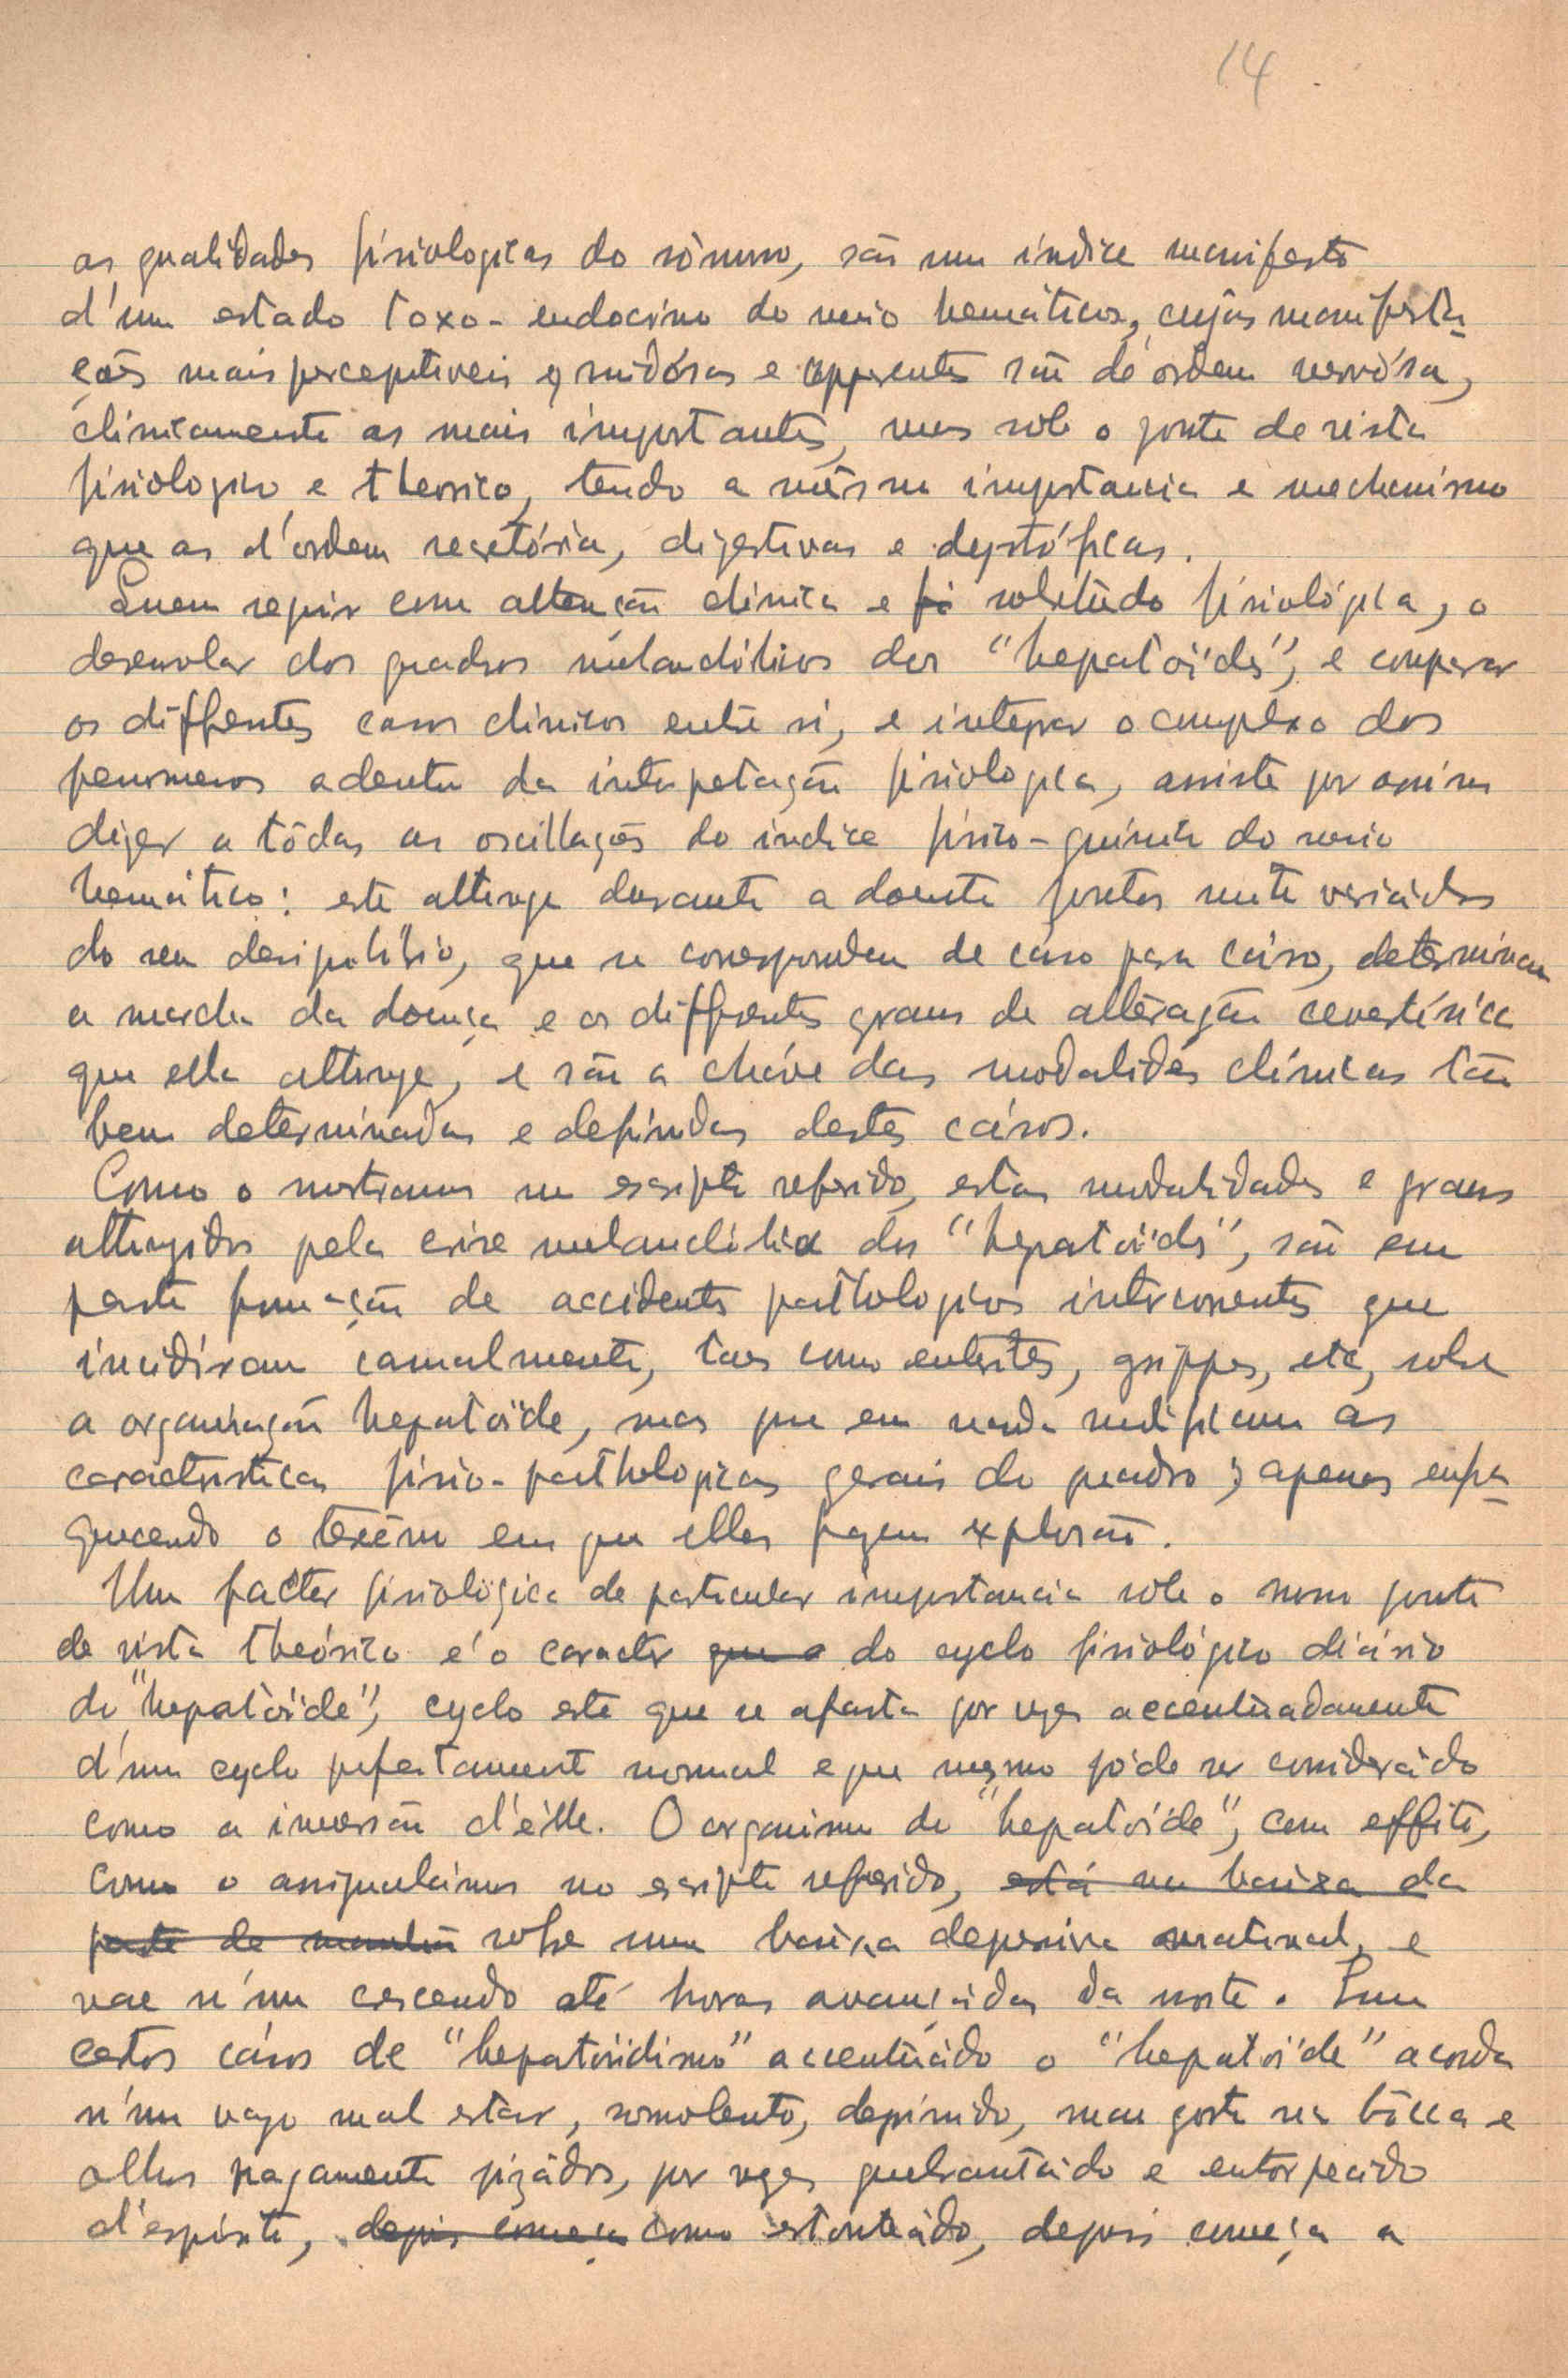 14
as qualidades fisiologicas do sômno, são um indice manifesto
d'um estado toxo-endocrino do meio hemático, cujas manifesta-
ções mais perceptiveis e ruidósas e apparentes são de órdem nervósa,
clinicamente as mais importantes, mas sob o ponto de vista
fisiologico e theorico, tendo a mêsma importancia e mechanismo
que as d'ordem secretória, digestivas e dystróficas.
Quem seguir com attenção clinica e sobretùdo fisiológica, o
desenrolar dos quadros melancólicos dos "hepatoïdes", e comparar
os differentes casos clinicos entre si, e integrar o complexo dos
fenomenos adentro da interpretação fisiologica, assiste por assim
dizer a tôdas as oscillações do indice fisico-quimico do meio
hemático: este attinge durante a doença pontos muito variádos
do seu desiquilibrio, que se correspondem de cáso para cáso, determinam
a marcha da doença e os differentes graus de alteração cenestésica
que ella attinge, e são a cháve das modalidades clinicas tão
bem determinadas e definidas destes cásos.
Como o mostramos no escripto referido, estas modalidades e graus
attingidos pela crise melancólica dos "hepatoïdes", são em
parte funcção de accidentes pathologicos intercorrentes que
incidiram casualmente, taes como enterites, grippes, etc, sobre
a organisação hepatoïde, mas que em nada modificam as
caracteristicas fisio-pathologicas gerais do quadro; apenas enfra-
quecendo o terreno em que elles fazem explosão.
Um factor fisiológico de particular importancia sob o nosso ponto
de vista theórico é o caracter que o do cyclo fisiológico diário
do "hepatoïde", cyclo este que se afasta por vezes accentuadamente
d'um cyclo perfeitamente normal e que mesmo póde ser considerádo
como a inversão d'élle. O organismo do "hepatoïde", com effeito,
como o assignalámos no escripto referido, está na baixa da
parte da manhã sofre uma baixa depressiva matinal, e
vae n'um crescendo até horas avançádas da noite. Em
certos cásos de "hepatoïdismo" accentuádo o "hepatoïde" acorda
n'um vago mal estar, somnolento, deprimido, mau gosto na bôcca e
olhos vagamente pizádos, por vezes quebrantádo e entorpecido
d'espirito, depois começa como estonteádo, depois começa a